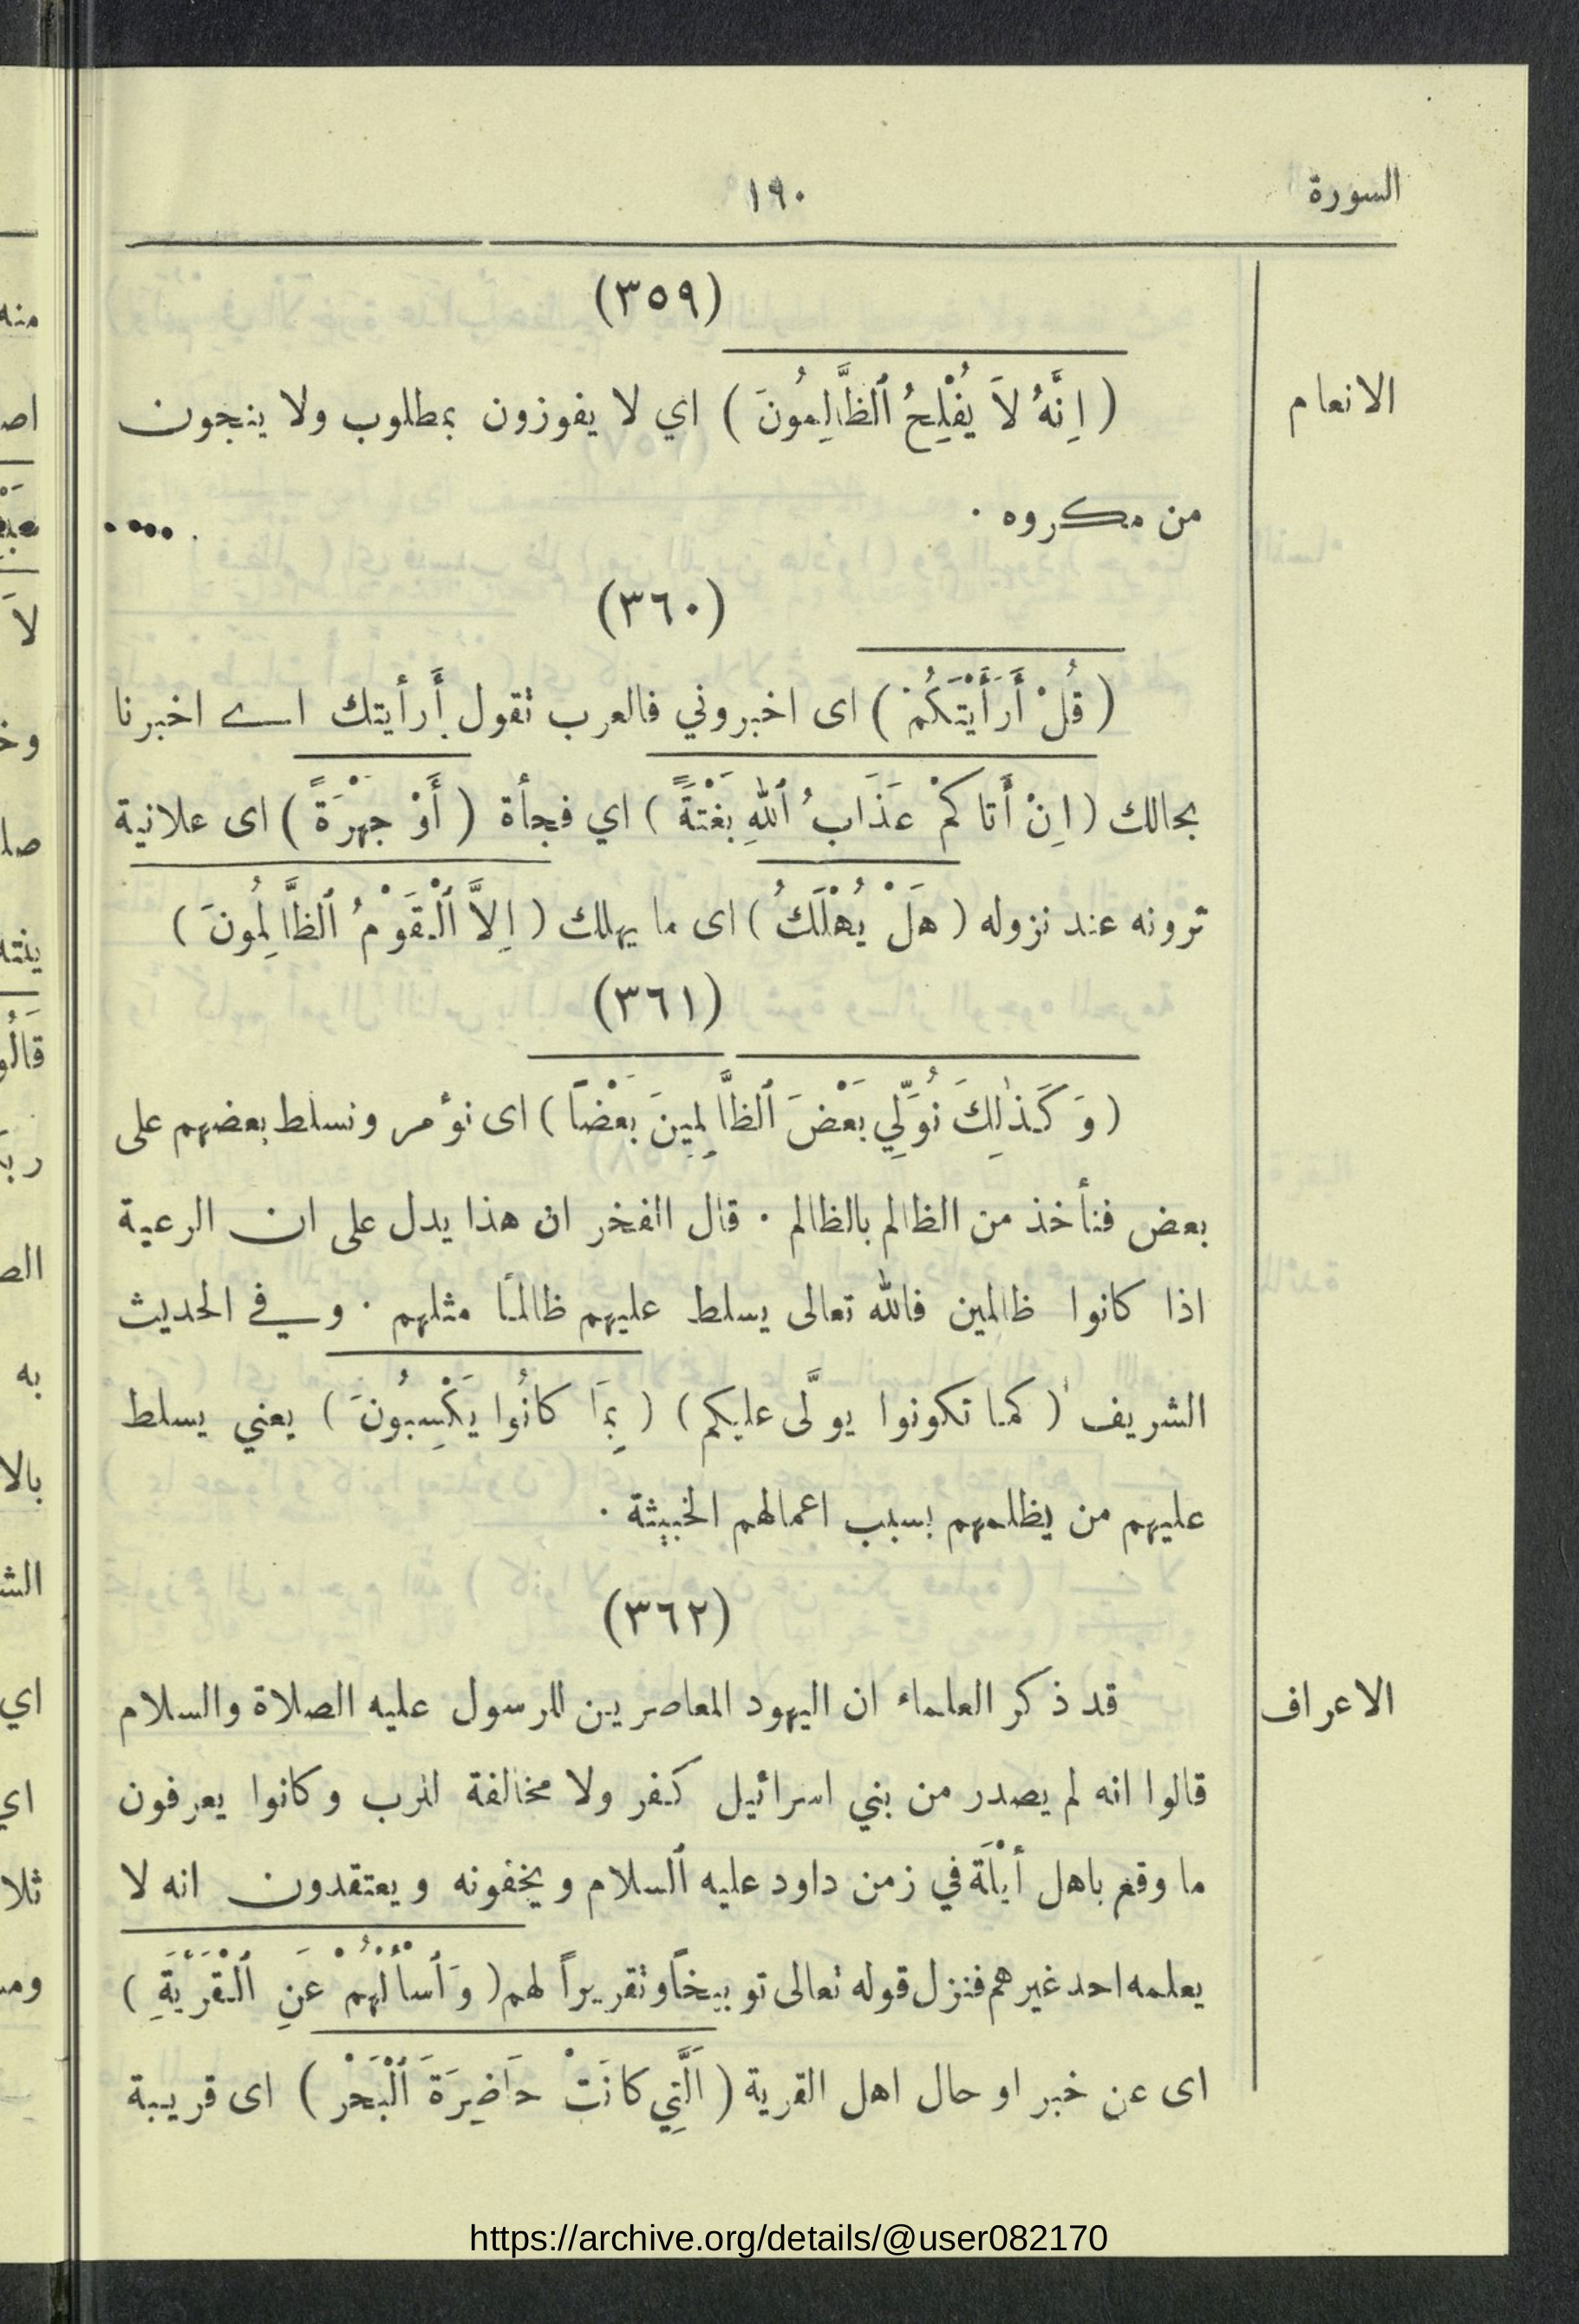 السورة ١٩٠
(٣٥٩)
الانعام
( اِنَّهُ لاَ يُفْلِحُ ٱلظَّالِمُونَ ) اي لا يفوزون بمطلوب ولا ينجون
من مكروه ٠
(٣٦٠)
( قُلْ أَرَأَيْتَكُمْ ) اى اخبروني فالعرب تقول أَرأيتك اے اخبرنا
بحالك ( اِنْ أَتاكمْ عَذَابُ ٱللهِ بَغْتَةً ) اي فجأة ( أَوْ جَهْرَةً ) اى علانية
ترونه عند نزوله ( هَلْ يُهْلَكُ ) اى ما يهلك ( اِلاَّ ٱلْقَوْمُ ٱلظَّالِمُونَ )
(٣٦١)
( وَكَذٰلِكَ نُوَلِّي بَعْضَ ٱلظَّالِمِينَ بَعْضاً ) اى نؤمر ونسلط بعضهم على
بعض فنأخذ من الظالم بالظالم ٠ قال الفخر ان هذا يدل على ان الرعية
اذا كانوا ظالمين فالله تعالى يسلط عليهم ظالمًا مثلهم ٠ وفي الحديث
الشريف ( كما تكونوا يولَّى عليكم ) ( بِمَا كانُوا يَكْسِبُونَ ) يعني يسلط
عليهم من يظلمهم بسبب اعمالهم الخبيثة ٠
(٣٦٢)
الاعراف
قد ذكر العلماء ان اليهود المعاصرين للرسول عليه الصلاة والسلام
قالوا انه لم يصدر من بني اسرائيل كفر ولا مخالفة للرب وكانوا يعرفون
ما وقع باهل أَيْلَة في زمن داود عليه ٱلسلام ويخفونه ويعتقدون انه لا
يعلمه احد غيرهم فنزل قوله تعالى توبيخاً وتقريراً لهم ( وَٱسأَلْهُمْ عَنِ ٱلْقَرْيَةِ )
اى عن خبر او حال اهل القرية ( ٱلَّتِي كانَتْ حَاضِرَةَ ٱلْبَحْرْ ) اى قريبة
https://archive.org/details/@user082170